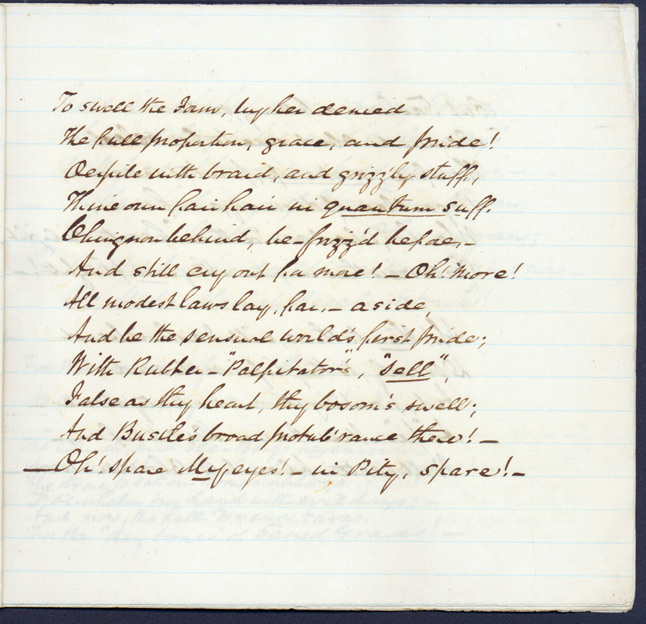 To swell the Form, by her denied
The full proportion, grace, and pride!
Despite with braid, and grizzly stuff,
Thine own fair hair in quantum suff.
Chignon behind, be-frizz'd before,-
And still cry out for more! - Oh! More!
All modest laws lay, far, - aside,
And be the sensual world's first pride;
With Rubber - "Palpitator's", "sell",
False as thy heart, thy bosom's swell;
And Bustle's broad protub'rance there! -
- Oh! spare My eyes! - in Pity, spare! -